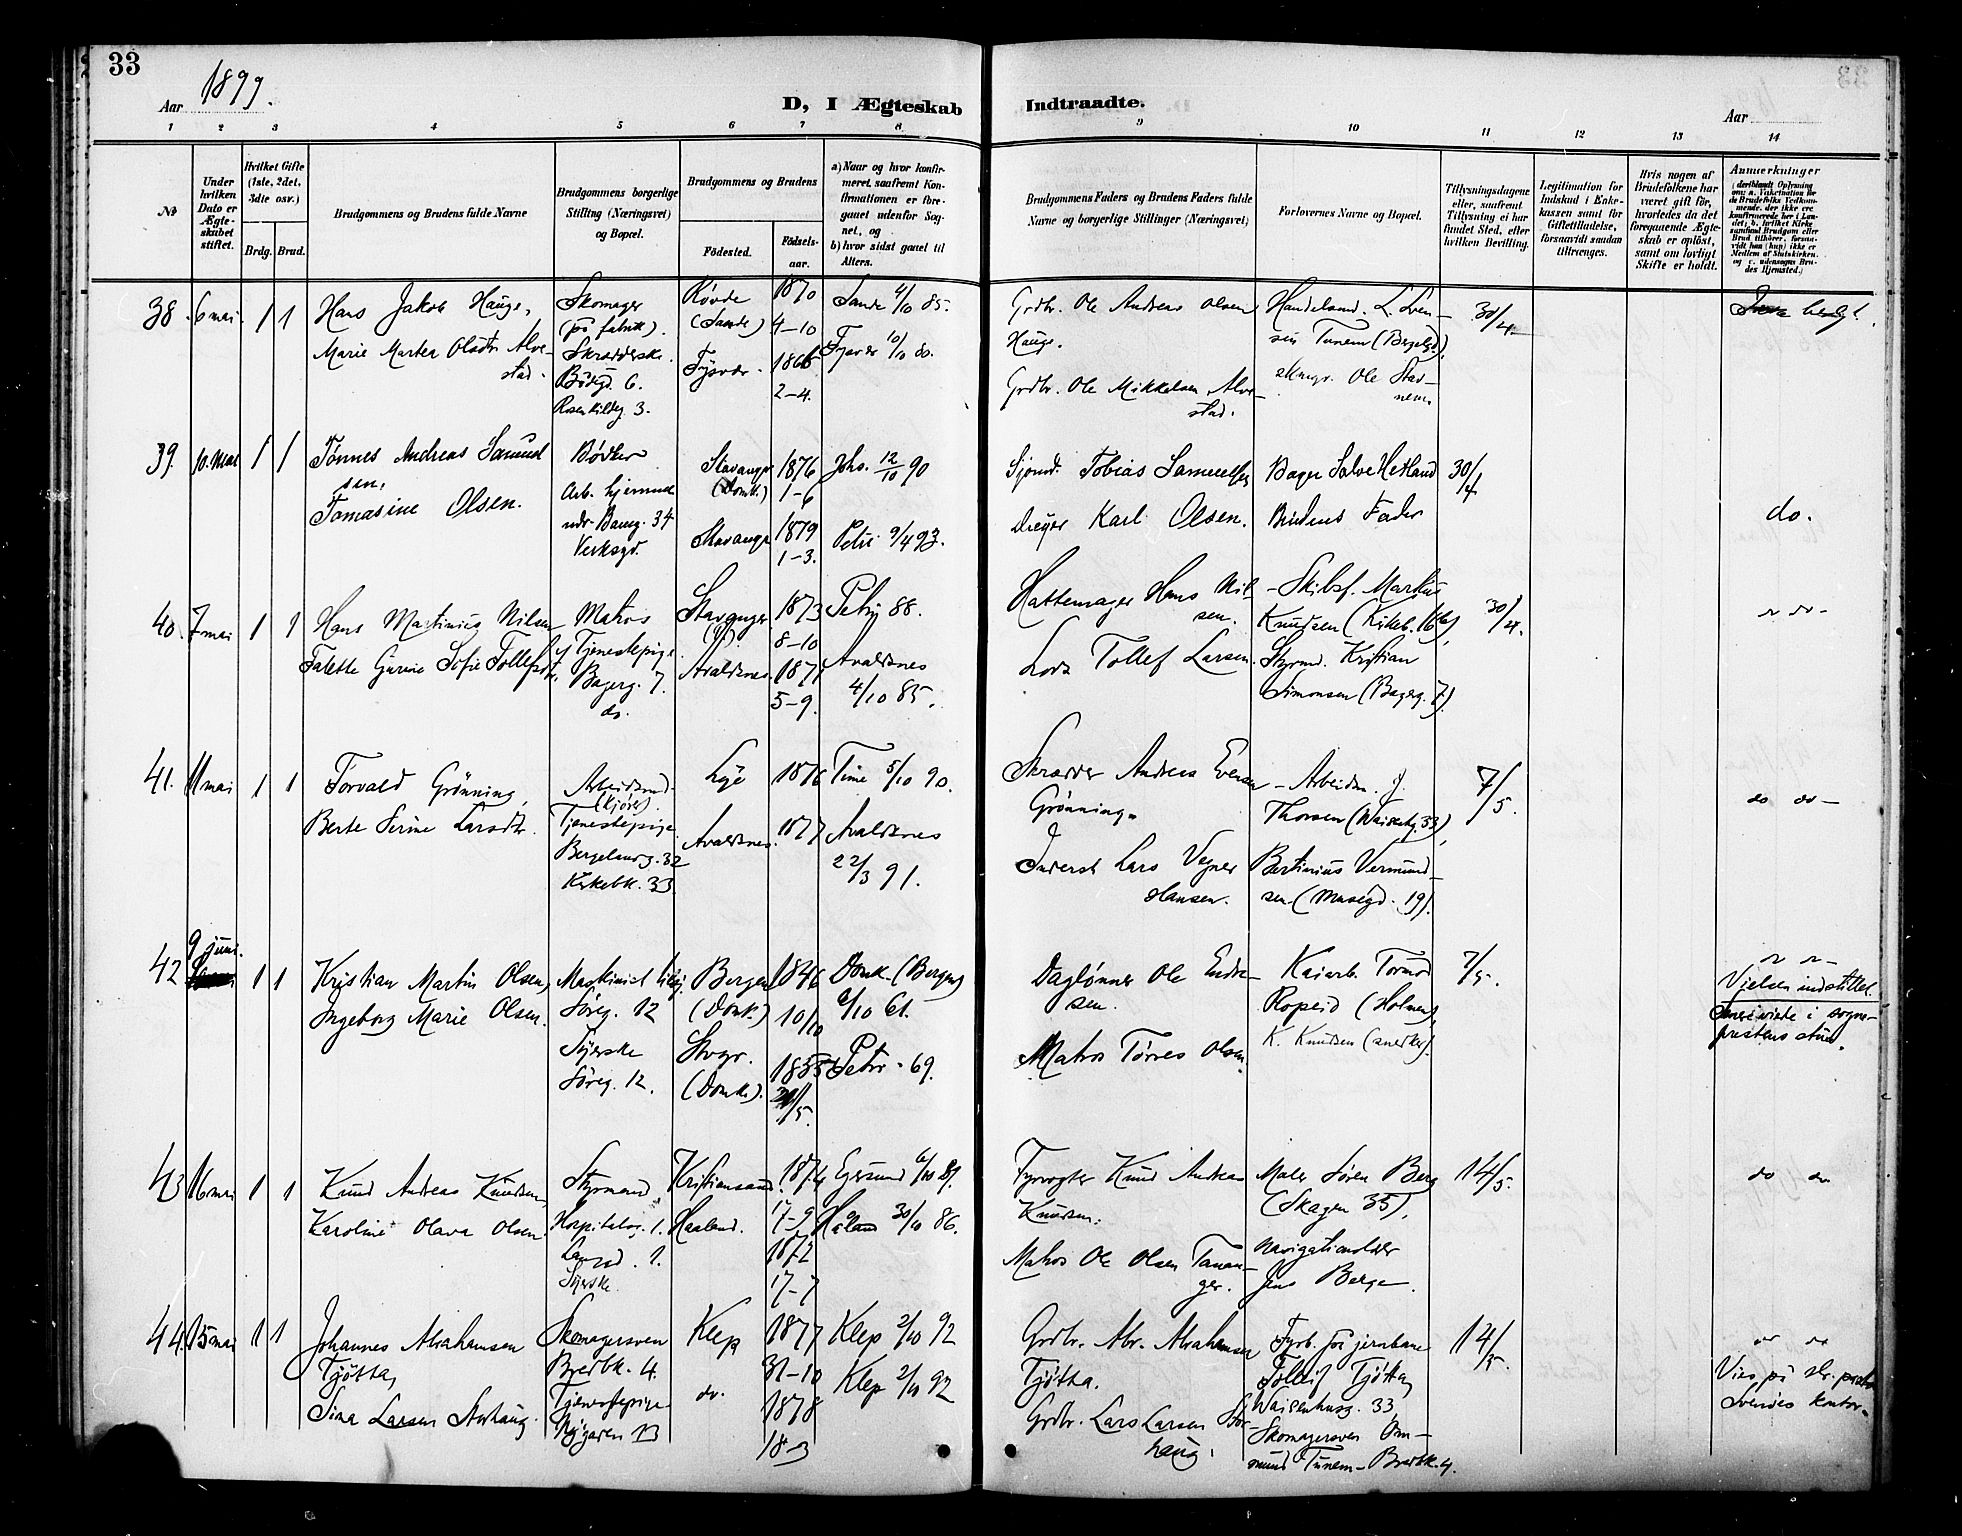 33
Aar 1899.
D, I Ægteskab Indtraadte.
Aar
1 2 3 4 5 6 7 8 9 10 11 12 13 14
No
Under hvilken Dato er Ægteskabet stiftet.
Hvilket Gifte (1ste, 2det, 3die osv.)
Brdg. Brud.
Brudgommens og Brudens fulde Navne
Brudgommens borgerlige Stilling (Næringsvei) og Bopæl.
Brudgommens og Brudens
Födested. Födselsaar.
a) Naar og hvor konfirmeret, saafremt Konfirmationen er foregaaet udenfor Sognet, og
b) hvor sidst gaaet til Alters.
Brudgommens Faders og Brudens Faders fulde Navne og borgerlige Stillinger (Næringsvei)
Forlovernes Navne og Bopæl.
Tillysningsdagene eller, saafremt Tillysning ei har fundet Sted, efter hvilken Bevilling.
Legitimation for Indskud i Enkekassen samt for Giftetilladelse, forsaavidt saadan tiltrænges.
Hvis nogen af Brudefolkene har været gift för, hvorledes da det foregaaende Ægteskab er oplöst, samt om lovligt Skifte er holdt.
Anmærkninger
38. 6 mai. 1 1
Hans Jakob Hauge,
Marie Martea Olsdtr Alvestad.
Skomager
(på fabrik).
Skrædderske.
6.
3.
Røvde
(Sande)
Tysvær.
1870
4-10
1866
2-4.
Sande 4/10 85.
Tysvær 10/10 do.
Grdbr. Ole Andreas Olsen
Hauge.
Grdbr. Ole Mikkelsen Alvestad.
Handelsmd. L. Svensen Tunem (Bergelgd),
skmgr. Ole Stavnem.
30/4
39. 10. Mai 1 1
Tønnes Andreas Samuelsen,
Tomasine Olsen.
Bødker
Arb. hjemme
34
Verksgd.
Stavanger
(Domk.)
Stavanger
1876
1-6
1879
1-3.
Johs. 12/10 90
Petri 9/4 93.
Sjømd. Tobias Samuelsen
Dreyer Karl Olsen.
Bager Salve Hetland
Brudens Fader
30/4
do.
40. 7 mai 1 1
Hans Martinius Nilsen
Talette Gurine Sofie Tollefsdtr,
Matros
Tjenestepige
Bagerg. 7.
do.
Stavanger
Avaldsnes
1873
8-10
1871
5-9.
Petri 88.
Avaldsnes
4/10 85.
Hattemager Hans Nilsen.
Lods Tollef Larsen.
Skibsf. Markus
Knudsen (Kirkeb. 16b),
Styrmd. Kristian
Simonsen (Bagerg. 7).
30/4.
41. 11 mai 1 1
Torvald Grønning,
Berte Serine Larsdtr.
Arbeidsmd.
(Kjører).
Tjenestepige
Bergelandsg. 32
Kirkebk. 33
Lye
Avaldsnes.
1876
1877
Time 5/10 90.
Avaldsnes
22/3 91.
Skrædder Andreas Evensen
Grønning.
Inderst Lars Vegner
Hansen.
Arbeidsm. J.
Thorsen (Waisenhg. 33),
Bertinius Vermundsen (Musegd. 19).
7/5.
do do
42 9 juni. 1 1
Kristian Martin Olsen,
Ingeborg Marie Olsen.
Maskinist
Søreg. 12
Syerske
Søreg. 12.
Bergen
(Domk.)
Stvgr.
(Domk.)
1846
10/10
1855
Domk. (Bergen)
61.
Petri - 69.
Daglønner Ole Endresen.
Matros Tørres Olsen
Kaiarb. Tormod
Ropeid (Holmen),
K. Knudsen (snedker).
7/5.
Vielsen indstillet.
viede i sognepræstens stue.
43 16 mai 1 1
Knud Andreas Knudsen,
Karoline Olava Olsen
Styrmand
Hospitalsg. 1.
1.
Syerske.
Kristiansand.
Haaland.
1874
17-9
1872
17-7
Egersund 6/10 89.
Håland 30/10 86.
Fyrvogter Knud Andreas
Knudsen.
Matros Ole Olsen Tananger.
Maler Søren Berg
(Skagen 35),
Navigationslær
Jens Berge.
14/5.
do do
44. 15 mai 1 1
Johannes Abrahamsen
Tjøtta,
Sina Larsen Storhaug.
Skomagersven
Bredbk. 4.
Tjenestepige
Nygaden 13
Klep
do.
1877
31-10
1878
18-3
Klep 2/10 92
Klep 2/10 92
Grdbr. Abr. Abrahamsen
Tjøtta.
Grdbr. Lars Larsen Storhaug.
Fyrb. på jernbane
Tolleif Tjøtta,
Waisenhusg. 33,
Skomagersven Ommund Tunem - Bredbk. 4.
14/5.
Vies på
kontor.